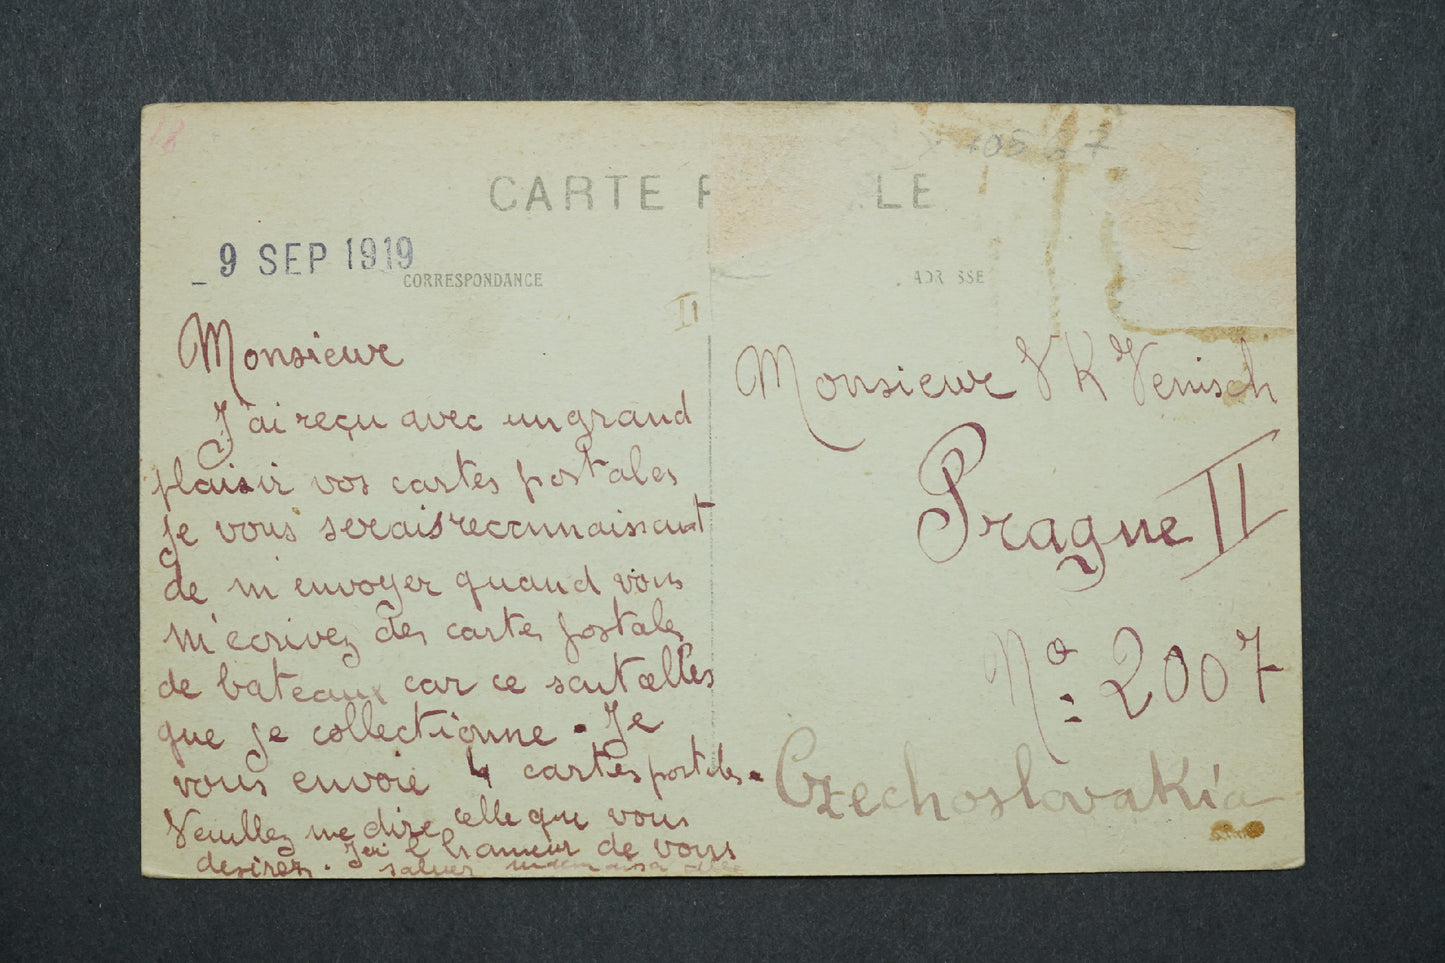 18
10567
CARTE P LE
9 SEP 1919
CORRESPONDANCE
ADR SSE
II
Monsieur
J'ai reçu avec un grand
plaisir vos cartes postales
je vous serais reconnaissant
de m'envoyer quand vous
m'ecrivez des cartes postales
de bateaux car ce sont celles
que je collectionne. Je
vous envoie 4 cartes postales.
Veuillez me dire celle que vous
desirez. J'ai l'honneur de vous
saluer
Monsieur VK Venisch
Prague II
No. 2007
Czechoslovakia